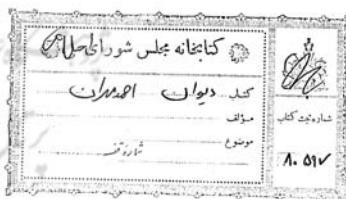 کتابخانه مجلس شورای اسلامی
کتاب دیوان احمد
مؤلف
موضوع
شماره ثبت کتاب
۸۰۵۱۷